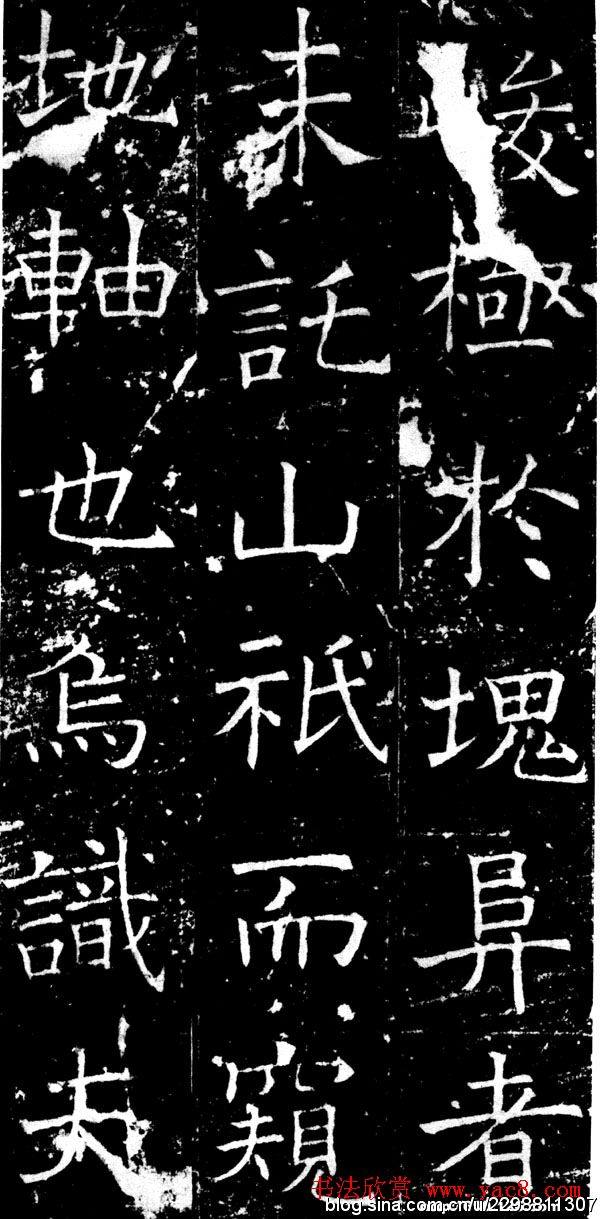 峻極於塊阜者
未託山祇而窺
地軸也烏識夫
书法欣赏 www.yac8.com
blog.sina.com.cn/u/2298811307